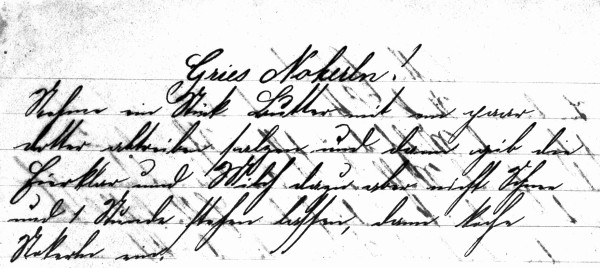 Gries Nokerln!
Nehme ein Stück Butter mit ein paar
dotter abtreiben salzen und dann gib den
Eierklar und Milch dazu aber nicht
und 1 Stunde stehen lassen, dann koche
Nokerln ein.